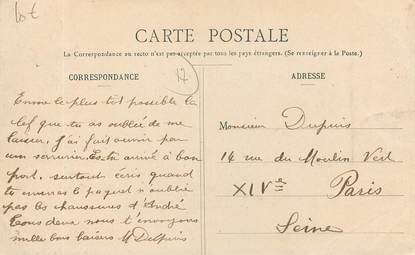 lot
CARTE POSTALE
La Correspondance au recto n'est pas acceptée par tous les pays étrangers. (Se renseigner à la Poste.)
CORRESPONDANCE
17
Envoie le plus tôt possible la
clef que tu as oubliée de me
laisser, j'ai fait ouvrir par
un serrurier. Es tu arrivé à bon
port, surtout écris quand
tu enverras le paquet n'oublie
pas les chaussures d'André
Tous deux nous t'envoyons
mille bons baisers M Dupuis
ADRESSE
Monsieur Dupuis
14 rue du Moulin Vert
XIVe Paris
Seine